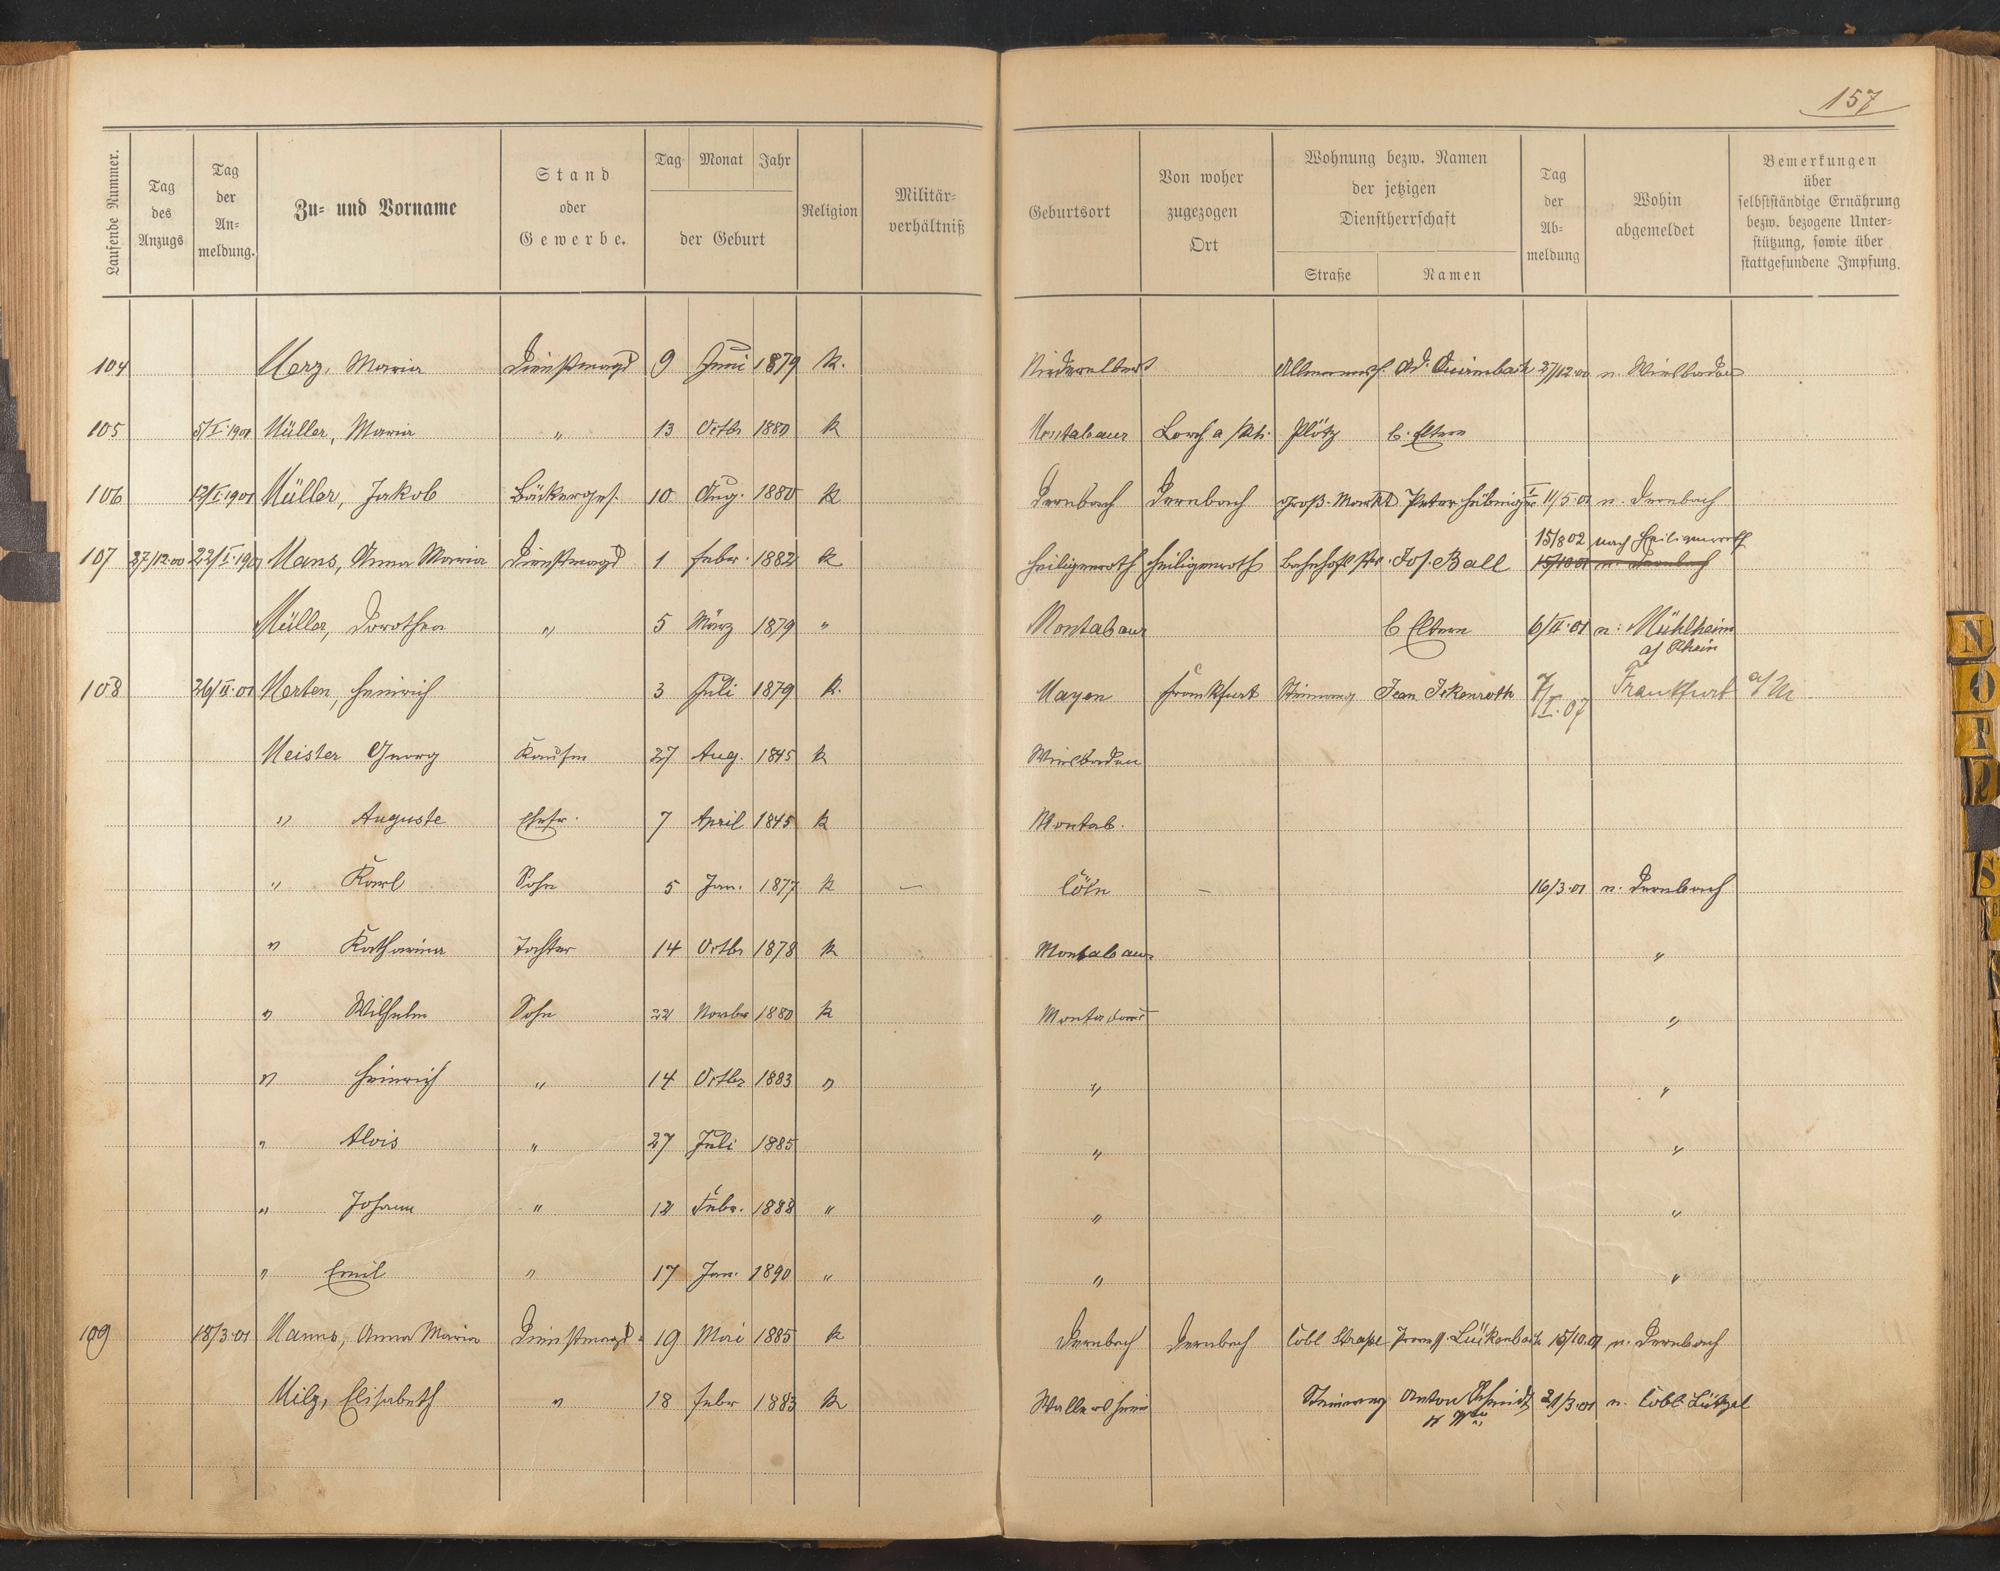 157
Laufende Nummer. Tag des Anzugs Tag der An-meldung. Zu- und Vorname Stand oder Gewerbe. Tag Monat Jahr der Geburt Religion Militär-verhältniß Geburtsort Von woher zugezogen Ort Wohnung bezw. Namen der jetzigen Dienstherrschaft Straße Namen Tag der Ab-meldung Wohin abgemeldet Bemerkungen über selbstständige Ernährung bezw. bezogene Unter-stützung, sowie über stattgefundene Impfung.
104 Merz, Maria Dienstmagd 9 Juni 1879 k. Niederelbert Ad. Quirmbach 27/12 00 n. Wiesbaden
105 5/I.1901 Müller, Maria " 13 Octbr 1880 k Montabaur Lorch a/Rh. Plötz b. Eltern
106 12/I.1901 Müller, Jakob Bäckerges. 10 Aug. 1880 k Dernbach Dernbach groß. Markt Peter 11/5.01 n. Dernbach
15/8 02 nach Heiligenroth
107 27/12.00 22/I.1901 Mans, Anna Maria Dienstmagd 1 Febr. 1882 k Heiligenroth Heiligenroth Bahnhofstr. Jos. Ball 15/10 01 n. Dernbach
Müller, Dorothea " 5 März 1879 " Montabaur b Eltern 6/II.01 n. Mühlheim
a/ Rhein
108 26/II.01 Merten, Heinrich 3 Juli 1879 k. Mayen Frankfurt Steinweg Jean Ickenroth 7/I.07 Frankfurt a/M
Meister Georg Kaufm 27 Aug. 1845 k Wiesbaden
" Auguste Ehefr. 7 April 1845 k Montab.
" Karl Sohn 5 Jan. 1877 k — Cöln — 16/3.01 n. Dernbach
" Katharina Tochter 14 Octbr 1878 k Montabaur "
" Wilhelm Sohn 22 Novbr 1880 k Montabaur "
" Heinrich " 14 Octbr 1883 " " "
" Alois " 27 Juli 1885 " "
" Johann " 12 Febr. 1888 " " "
" Emil " 17 Jan. 1890 " " "
109 18/3.01 Manns, Anna Maria Dienstmagd 19 Mai 1885 k Dernbach Dernbach Cobl Straße Lückenbach 15/10.01 n. Dernbach
Milz, Elisabeth " 18 Febr 1883 k Wallersheim Steinweg Anton Schmidt 21/3.01 n. Cobl. Lützel